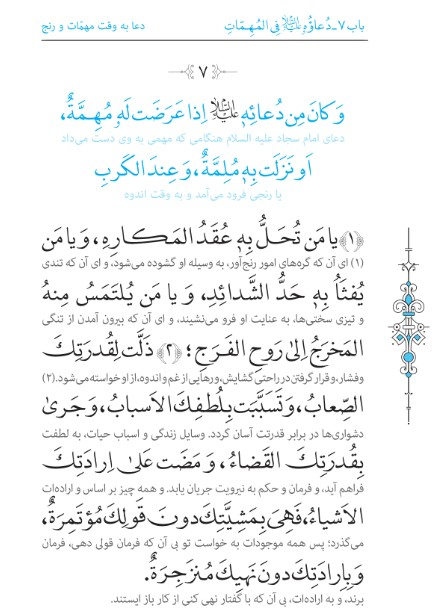 باب ۷ـ دُعاؤُهُ علیه‌السلام فِی المُهِمّاتِ
دعا به وقت مهمّات و رنج
۷
وَ كانَ مِن دُعائِهِ علیه‌السلام اِذا عَرَضَت لَهُ مُهِمَّةٌ،
دعای امام سجاد علیه السلام هنگامی که مهمی به وی دست می‌داد
اَو نَزَلَت بِهِ مُلِمَّةٌ، وَ عِندَ الكَربِ
یا رنجی فرود می‌آمد و به وقت اندوه
﴿۱﴾ یا مَن تُحَلُّ بِهِ عُقَدُ المَكارِهِ، وَ یا مَن
(۱) ای آن که گره‌های امور رنج‌آور، به وسیله او گشوده می‌شود، و ای آن که تندی
یُفثَأُ بِهِ حَدُّ الشَّدائِدِ، وَ یا مَن یُلتَمَسُ مِنهُ
و تیزی سختی‌ها، به عنایت او فرو می‌نشیند، و ای آن که بیرون آمدن از تنگی
المَخرَجُ اِلىٰ رَوحِ الفَرَجِ؛ ﴿۲﴾ ذَلَّت لِقُدرَتِكَ
وفشار، و قرار گرفتن در راحتی گشایش، و رهایی از غم و اندوه، از او خواسته می‌شود. (۲)
الصِّعابُ، وَ تَسَبَّبَت بِلُطفِكَ الاَسبابُ، وَ جَرىٰ
دشواری‌ها در برابر قدرتت آسان گردد. وسایل زندگی و اسباب حیات، به لطفت
بِقُدرَتِكَ القَضاءُ، وَ مَضَت عَلىٰ اِرادَتِكَ
فراهم آید، و فرمان و حکم به نیرویت جریان یابد. و همه چیز بر اساس و اراده‌ات
الاَشیاءُ، فَهِیَ بِمَشِیَّتِكَ دونَ قَولِكَ مُؤتَمِرَةٌ،
می‌گذرد؛ پس همه موجودات به خواست تو بی آن که فرمان قولی دهی، فرمان
وَ بِاِرادَتِكَ دونَ نَهیِكَ مُنزَجِرَةٌ.
برند، و به اراده‌ات، بی آن که با گفتار نهی کنی از کار باز ایستند.